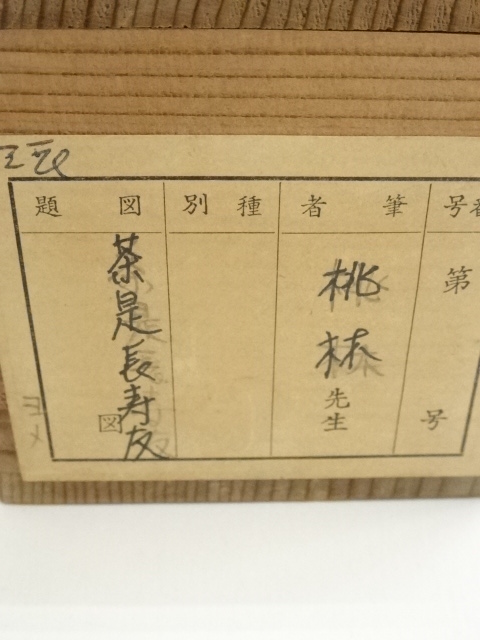 番号
第 号
筆者
桃林先生
種別
図題
茶是長寿友図